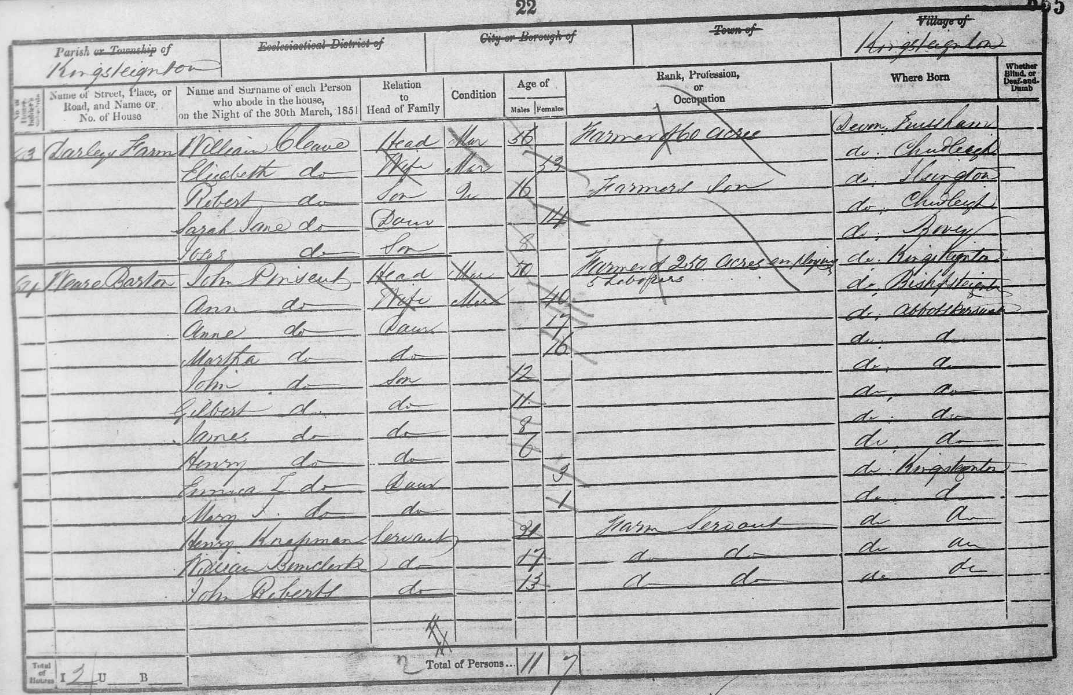 22
Parish or Township of Ecclesiastical District of City or Borough of Town of Village of
Kingsteignton Kingsteignton
Name of Street, Place, or Road, and Name or No. of House Name and Surname of each Person who abode in the house, on the Night of the 30th March, 1851 Relation to Head of Family Condition Age of Males Females Rank, Profession, or Occupation Where Born Whether Blind, or Deaf-and-Dumb
Farm William Cleave Head Mar 56 Farmer of 60 acre Devon
Elizabeth do Wife Mar 53 do. Chudleigh
Robert do Son Un 16 Farmers Son do. Ilsington
Sarah Jane do Daur 14 do. Chudleigh
do Son 8 do. Bovey
Weare Barton John Pinsent Head Mar 50 Farmer of 250 acres employing 5 Labopers do. Kingsteignton
Ann do Wife Mar 40 do. Bishopsteignton
Anne do Daur 17 do.
Martha do do 16 do. do
John do Son 12 do. do
Gilbert do. do 11 do. do
James do do 8 do. do
Henry do do 6 do do
Emma do Daur 3 do. Kingsteignton
Mary J. do do 1 do. do
Henry Knapman Servant 21 Farm Servant do do
William do 17 do do do do
John Roberts do 13 do do do do
Total of Houses I 2 U B Total of Persons... 11 7